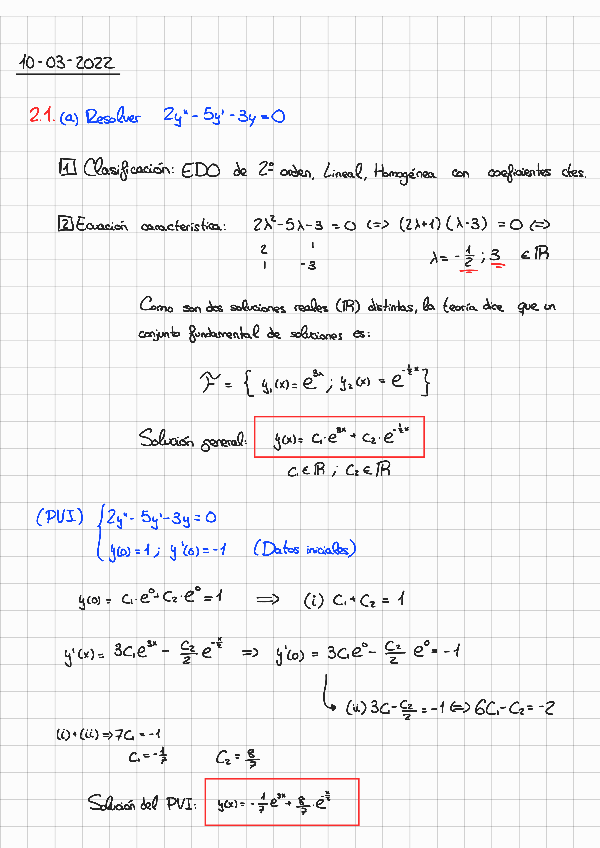 10-03-2022
2.1. (a) Resolver 2y'' - 5y' - 3y = 0
1 Clasificación: EDO de 2º orden, Lineal, Homogénea con coeficientes ctes.
2 Ecuación característica: 2λ² - 5λ - 3 = 0 <=> (2λ+1)(λ-3) = 0 <=>
2 1
1 -3
λ = -1/2 ; 3 ∈ ℝ
Como son dos soluciones reales (ℝ) distintas, la teoría dice que un
conjunto fundamental de soluciones es:
F = { y₁(x) = e^{3x} ; y₂(x) = e^{-1/2 x} }
Solución general: y(x) = C₁·e^{3x} + C₂·e^{-1/2 x}
C₁ ∈ ℝ ; C₂ ∈ ℝ
(PVI) { 2y'' - 5y' - 3y = 0
y(0) = 1 ; y'(0) = -1 (Datos iniciales)
y(0) = C₁·e⁰ + C₂·e⁰ = 1 => (i) C₁ + C₂ = 1
y'(x) = 3C₁e^{3x} - C₂/2 e^{-x/2} => y'(0) = 3C₁e⁰ - C₂/2 e⁰ = -1
(ii) 3C₁ - C₂/2 = -1 <=> 6C₁ - C₂ = -2
(i) + (ii) => 7C₁ = -1
C₁ = -1/7 C₂ = 8/7
Solución del PVI: y(x) = -1/7 e^{3x} + 8/7·e^{-x/2}